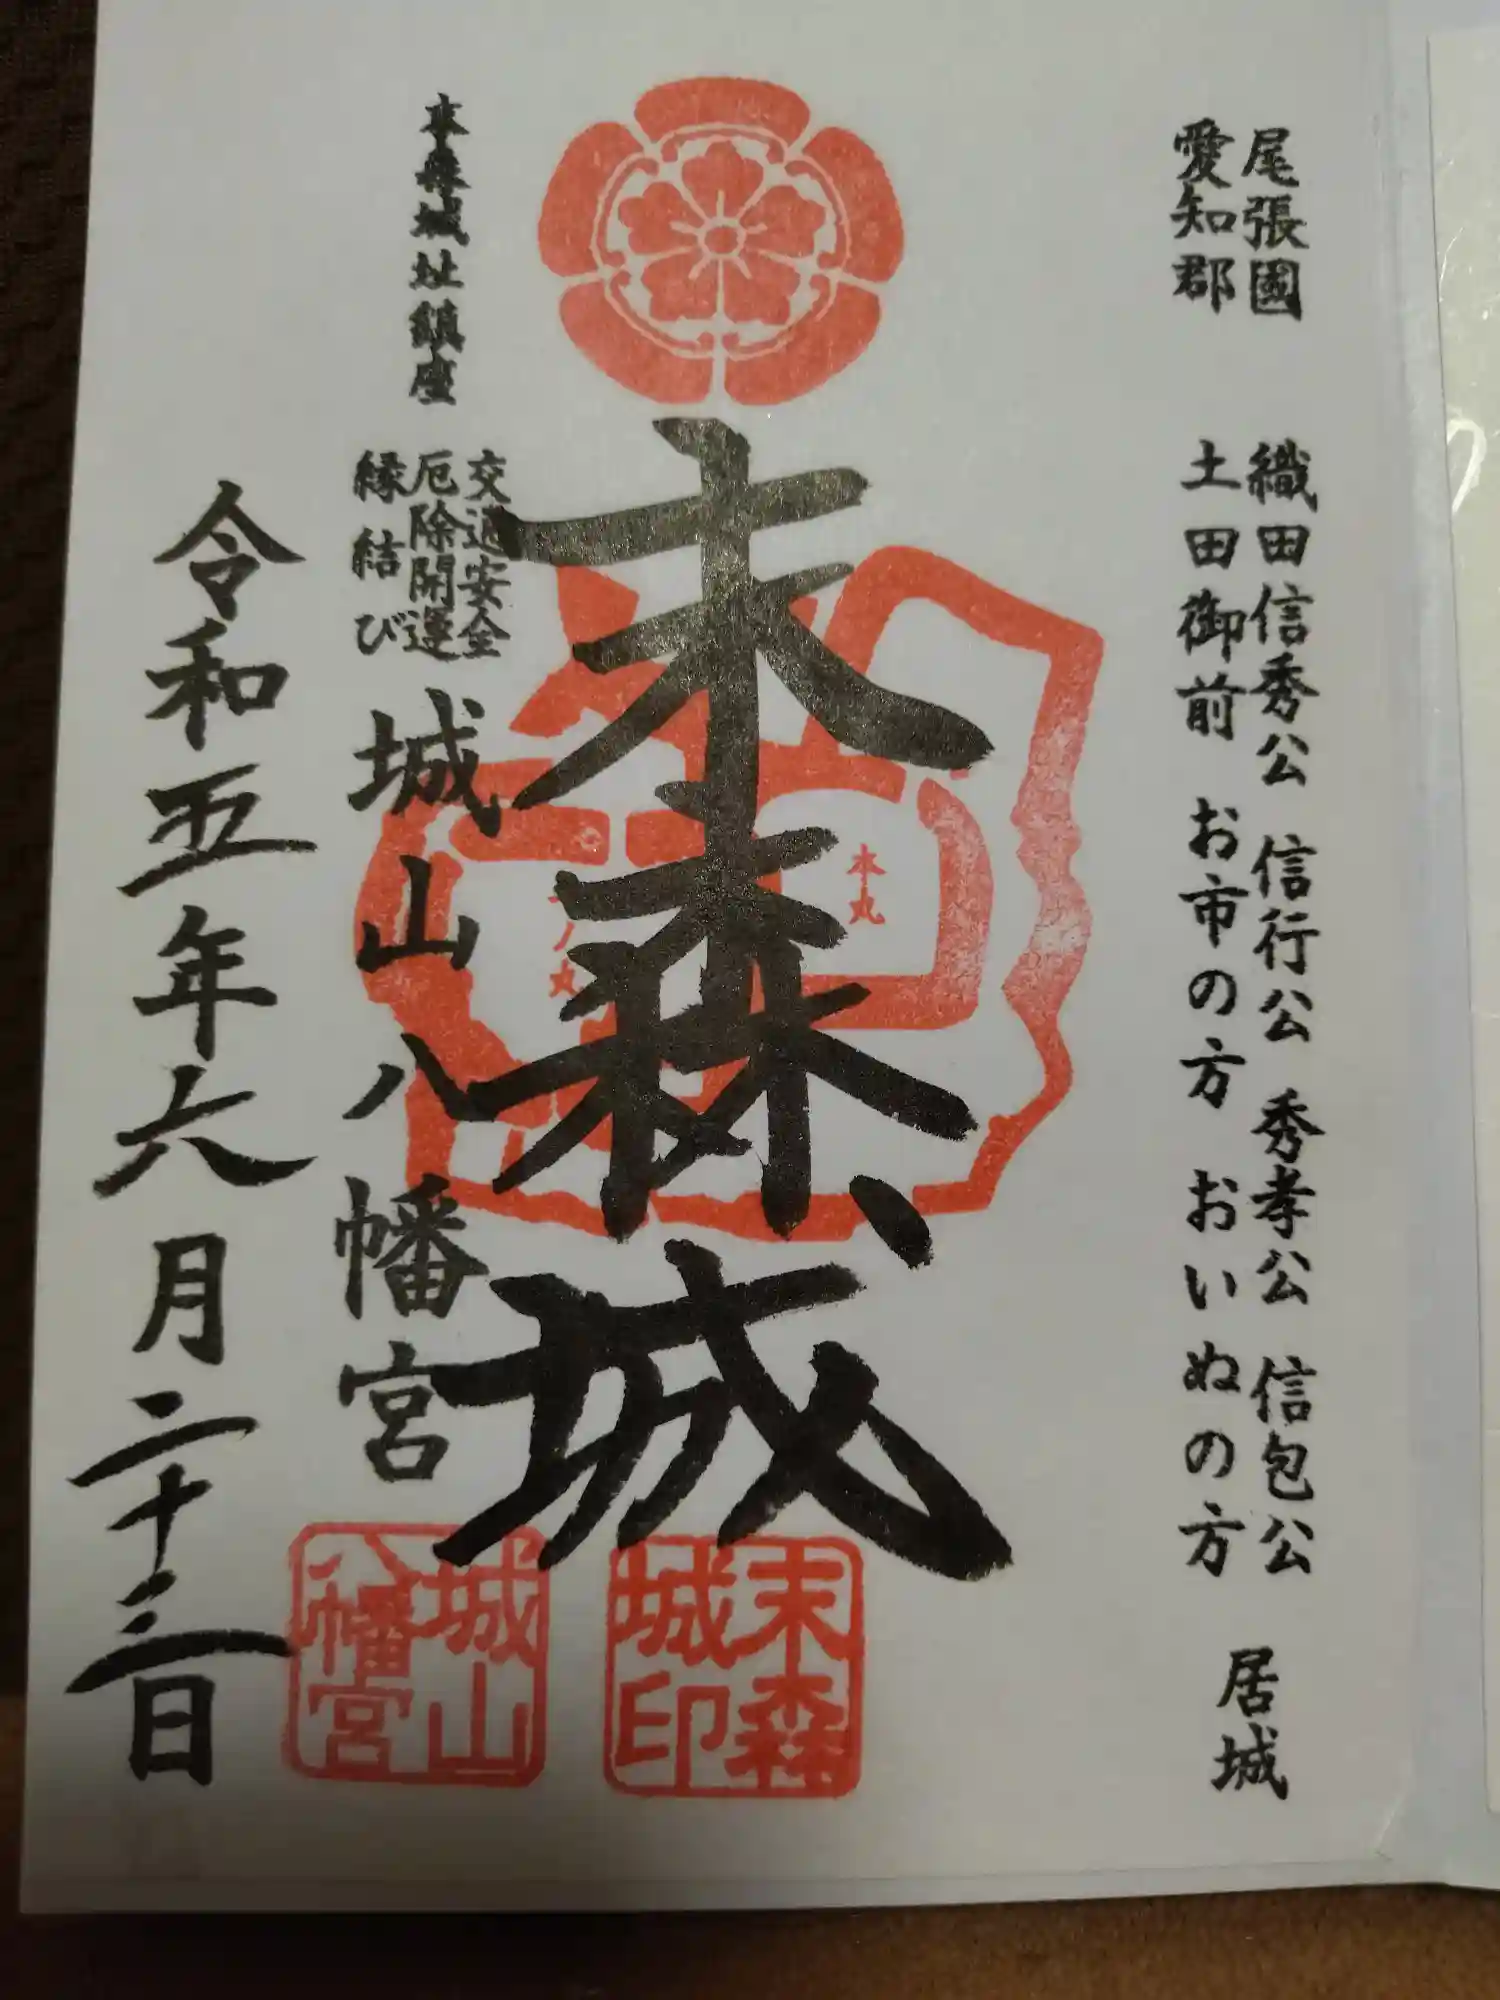 尾張國
愛知郡
織田信秀公 信行公 秀孝公 信包公
土田御前 お市の方 おいぬの方
居城
末森城
本丸
末森城印
末森城址鎮座
交通安全
厄除開運
縁結び
城山八幡宮
城山八幡宮
令和五年六月二十三日